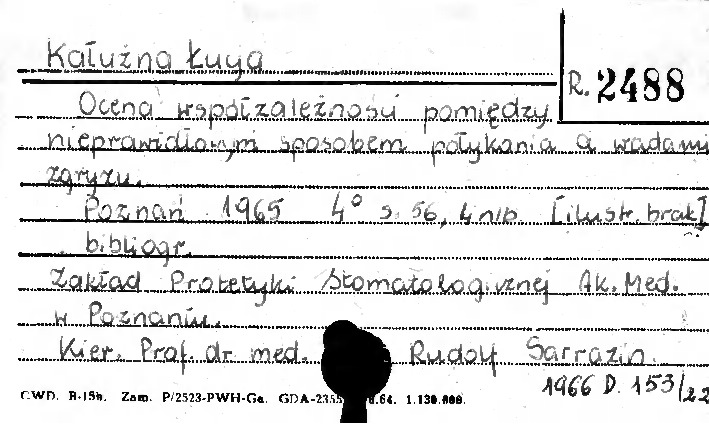 Kałużna Łuya
R. 2488
Ocena współzależności pomiędzy
nieprawidłowym sposobem połykania a wadami
zgryzu.
Poznań 1965 4° s. 56, 4 nlb. [ilustr. brak]
bibliogr.
Zakład Protetyki Stomatologicznej Ak. Med.
w Poznaniu.
Kier. Prof. dr med. Rudolf Sarrazin.
1966 D. 153/22
CWD. B-15b. Zam. P/2523-PWH-Ga. GDA-2355 .64. 1.130.000.